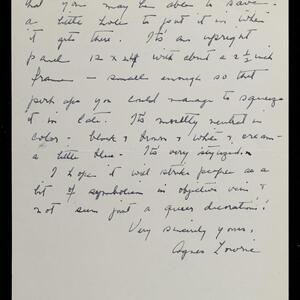 that you may be able to save -
a little hole to put it in when
it gets there. It's an upright
panel 12 x 24 with about a 2 1/2 inch
frame - small enough so that
perhaps you could manage to squeeze
it in late. It's mostly neutral in
color - black & brown & white & cream -
a little blue - It's very stylized.
I hope it will strike people as a
bit of symbolism in objective vein &
not seem just a queer decoration!!
Very sincerely yours,
Agnes Lowrie